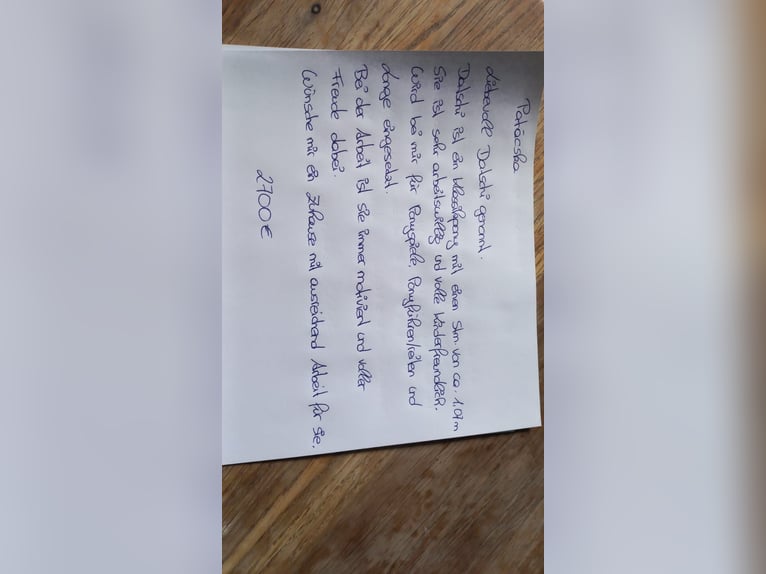 Patácska
Liebevoll Datschi genannt.
Datschi ist ein Klassikpony mit einen Stm. von ca. 1,07m
Sie ist sehr arbeitswillig und voll kinderfreundlich.
Wird bei mir für Ponyspiele, Ponyführen/reiten und
Longe eingesetzt.
Bei der Arbeit ist sie immer motiviert und voller
Freude dabei.
Wünsche mir ein Zuhause mit ausreichend Arbeit für sie.
2700€